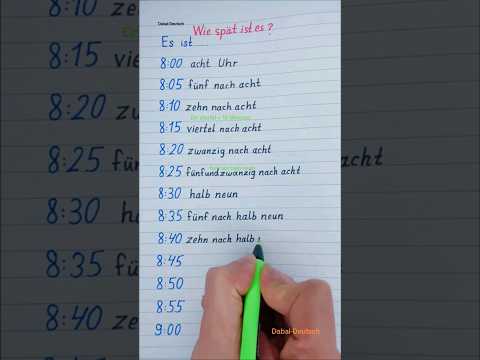 Dabal-Deutsch
Wie spät ist es?
Es ist......
8:00 acht Uhr
8:05 fünf nach acht
8:10 zehn nach acht
8:15 viertel nach acht
8:20 zwanzig nach acht
8:25 fünfundzwanzig nach acht
8:30 halb neun
8:35 fünf nach halb neun
8:40 zehn nach halb
8:45
8:50
8:55
9:00
Dabal-Deutsch